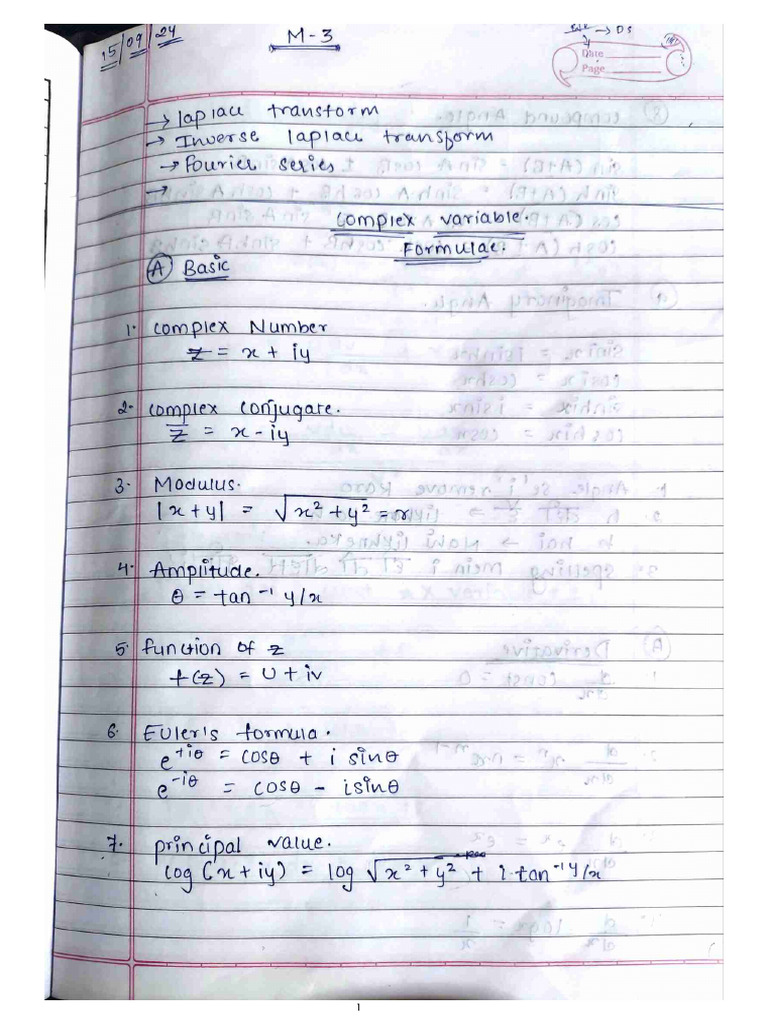 15/09/24
M-3
→ DS
Date
Page
→ laplace transform
→ Inverse laplace transform
→ Fourier series
→
complex variable.
Formulae.
(A) Basic
1. complex Number
z = x + iy
2. complex conjugate.
z̅ = x - iy
3. Modulus.
|x + y| = √x² + y² = r
4. Amplitude.
θ = tan⁻¹ y/x
5. function of z
f(z) = U + iv
6. Euler's formula.
e⁺ⁱᶿ = cosθ + i sinθ
e⁻ⁱᶿ = cosθ - isinθ
7. principal value.
log(x + iy) = log √x² + y² + i tan⁻¹ y/x
1